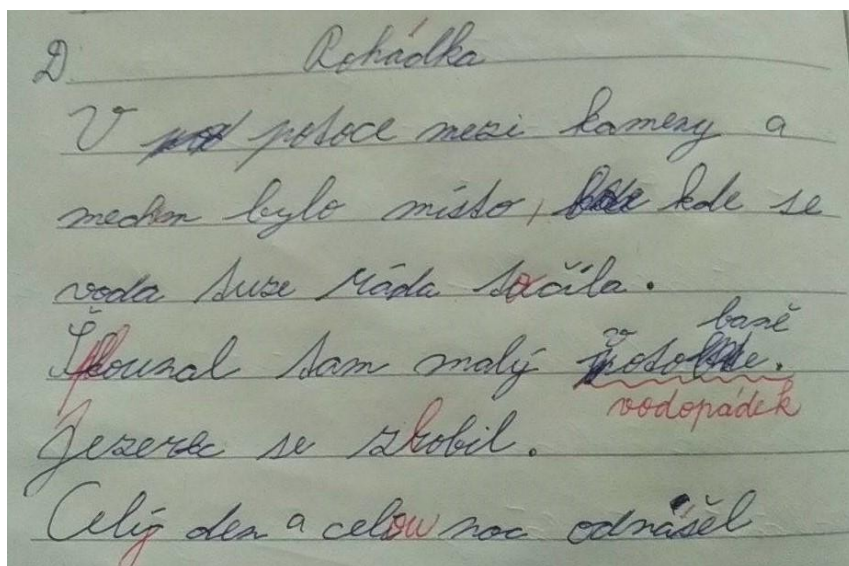 D. Pohádka
V potoce mezi kameny a
mechem bylo místo, kde se
voda tuze ráda točila.
Šplouchal tam malý
vodopádek
Jezerec se zrobil.
Celý den a celou noc odnášel